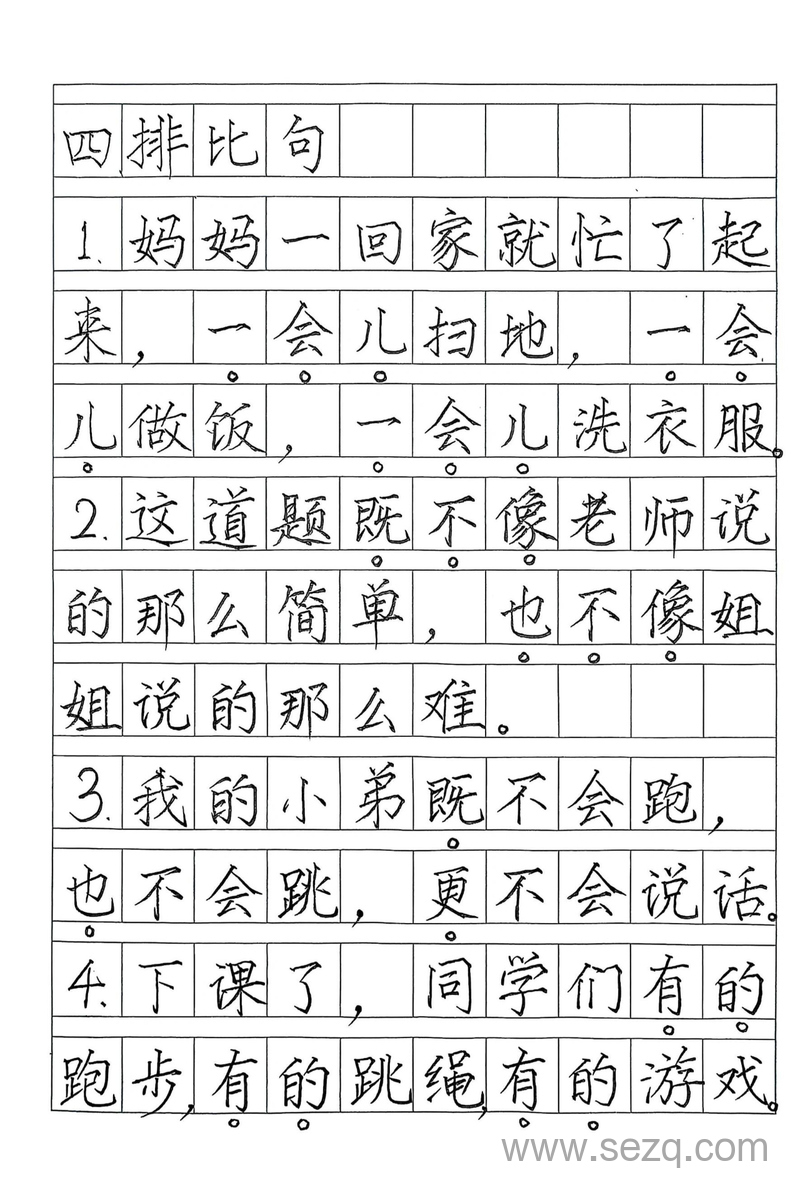 四排比句
1.妈妈一回家就忙了起
来，一会儿扫地，一会
儿做饭，一会儿洗衣服。
2.这道题既不像老师说
的那么简单，也不像姐
姐说的那么难。
3.我的小弟既不会跑，
也不会跳，更不会说话。
4.下课了，同学们有的
跑步，有的跳绳，有的游戏。
www.sezq.com